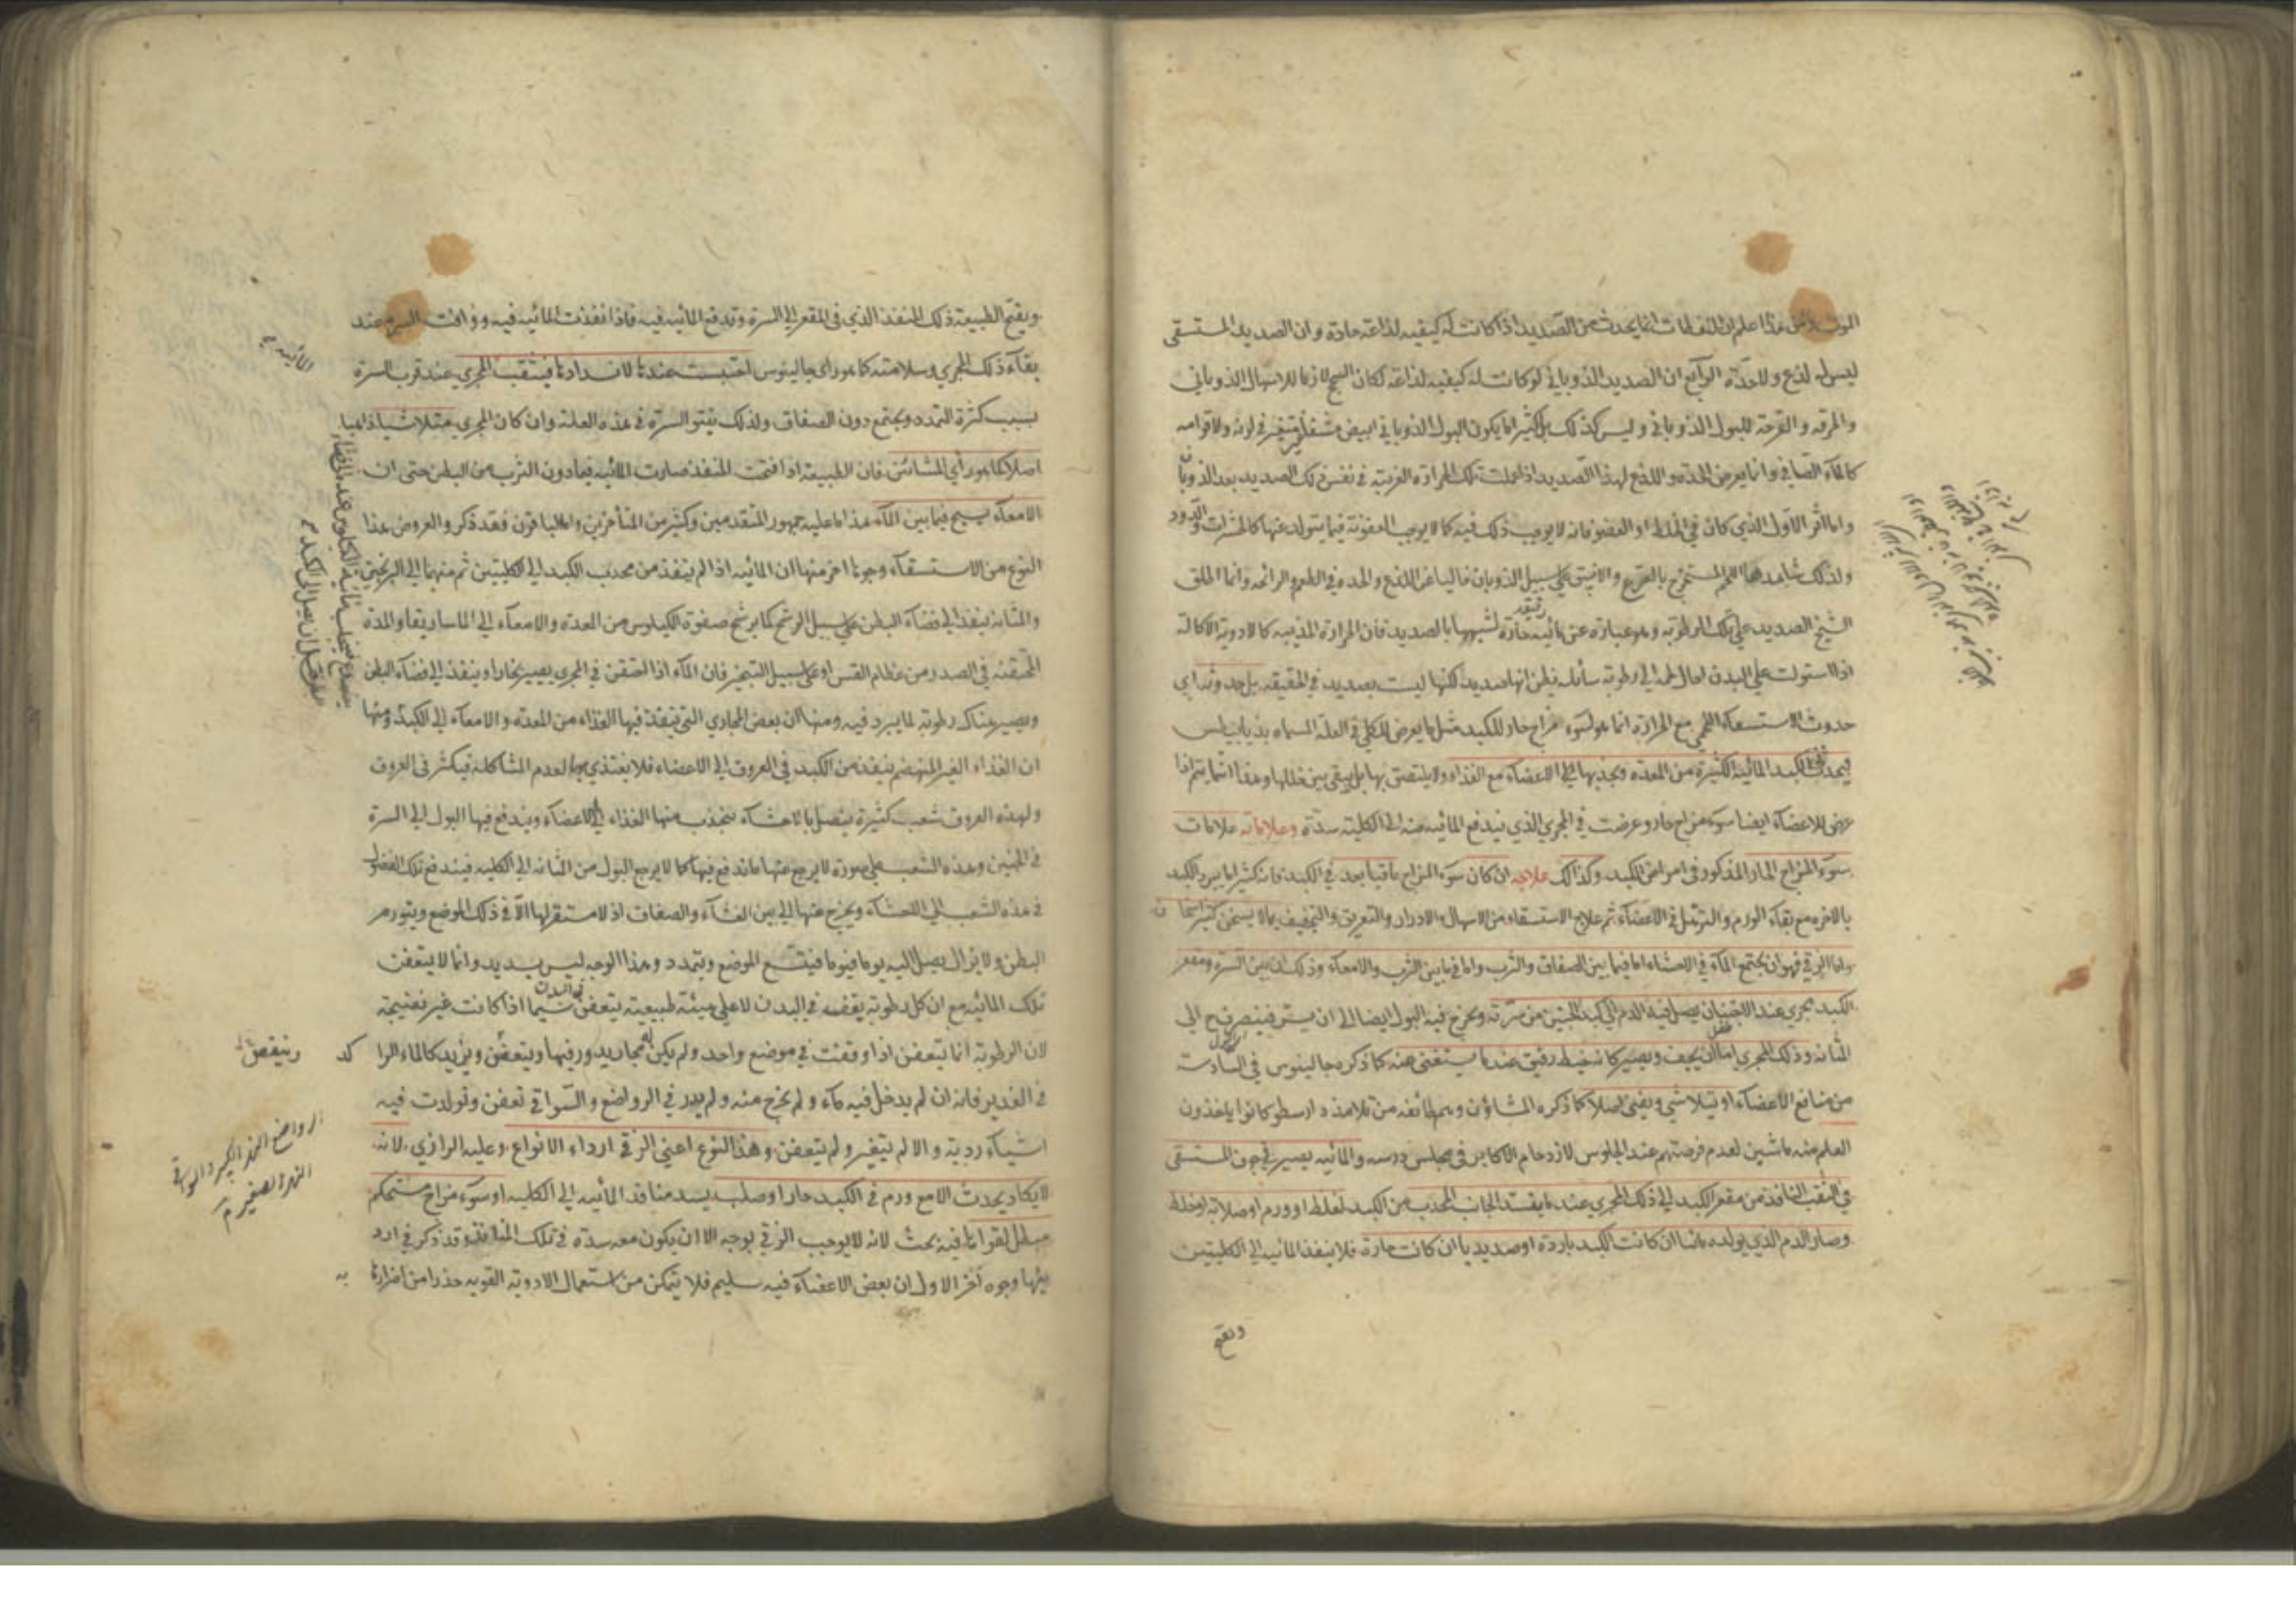 الموت ومن هذا علم ان النفاطات انما يحدث من الصديد اذا كانت له كيفيه لذاعه حادة وان الصديد المستسقى
ليس له لذع ولا حدة الرابع ان الصديد الذوبانى لو كانت له كيفيه لذاعه لكان السحج لازما للاسهال الذوبانى
والحرقه والقرحة للبول الذوبانى وليس كذلك بل كثيرا ما يكون البول الذوبانى ابيض متغير فى لونه ولا قوامه
كالماء الصافى وانما يعرض الحدة واللذع لهذا الصديد اذا عملت تلك الحرارة الغريبة فى نفس ذلك الصديد بعد الذوبان
واما اثر الاول الذي كان فى الخلط او العضو فانه لا يوجب ذلك فيه كما لا يوجب العفونة فيما يتولد عنها كالحشرات والدود
ولذلك شاهدها اللحم المستخرج بالقرع والانبيق على سبيل الذوبان خاليا عن اللذع والحدة فى الطعم والرائحه وانما اطلق
الشيخ الصديد على تلك الرطوبه وهو عبارة عن مائيه رقيقه حارة لشبهها بالصديد فان الحرارة المذيبه كالادوية الاكالة
اذا استولت على البدن احال لحمه الى رطوبة سائله فيظن انها صديد لكنها ليست بصديد فى الحقيقه بل حدوثه اي
حدوث الاستسقاء اللحمى مع الحرارة انما هو لسوء مزاج حار للكبد مثل ما يعرض للكلى فى العلة المسماه بذيابيطس
فيجذب الكبد المائية الكثيرة من المعدة ويجذبها الى الاعضاء مع الغذاء ولا يلتصق بها بل يبقى بين خللها وهذا انما يتم اذا
عرض للاعضاء ايضا سوء مزاج حار وعرضت فى المجرى الذي يندفع المائيه منه الى الكليه سدة وعلاماته علامات
سوء المزاج الحار المذكور فى امراض الكبد وكذلك علاجه ان كان سوء المزاج باقيا بعد فى الكبد فانه كثيرا ما يبرد الكبد
بالاخره مع بقاء الورم والترهل فى الاعضاء ثم علاج الاستسقاء من الاسهال والادرار والتعريق والتجفيف بما لا يسخن كثير اسخان
واما الزقى فهو ان يجتمع الماء فى الاحشاء اما فيما بين الصفاق والثرب واما فيما بين الثرب والامعاء وذلك ان بين السرة ومقعر
الكبد مجرى عند الاجتنان يصل فيه الدم الى كبد الجنين من سرته ويخرج فيه البول ايضا الى ان يستر فينصرف الى
المثانه وذلك المجرى اما ان يجف ويصير كانه خيط رقيق عندما يستغنى عنه كما ذكره جالينوس فى السادسة
من منافع الاعضاء او يتلاشى ويفنى اصلا كما ذكره المشاؤن وهم طائفه من تلامذه ارسطو كانوا ياخذون
العلم منه ماشين لعدم فرصتهم عند الجلوس لازدحام الاكابر فى مجلس درسه والمائيه يصير فى جوف المستسقى
فى الثقب النافذة من مقعر الكبد الى ذلك المجرى عند ما ينسد الجانب المحدب من الكبد لغلظ او ورم او صلابه او خلط
وصار الدم الذي يولده مائيا ان كانت الكبد باردة او صديديا ان كانت حارة فلا ينفذ المائيه الى الكليتين
ويفتح
ويفتح الطبيعة ذلك المنفذ الذي فى المقعر الى السرة وتدفع المائيه فيه فاذا نفذت المائيه فيه ووافت السرة عند
بقاء ذلك المجرى وسلامته كما هو راى جالينوس احتبست عندها لانسدادها فينثقب المجرى عند قرب السرة
بسبب كثرة التمدد ويجتمع دون الصفاق ولذلك ينتو السرة فى هذه العلة وان كان المجرى متلاشيا ذاهبا
اصلا كما هو رأى المشائين فان الطبيعه اذا فتحت المنفذ صارت المائيه فيما دون الثرب من البطن حتى ان
الامعاء يسبح فيما بين الماء هذا ما عليه جمهور المتقدمين وكثير من المتأخرين واما الباقون فقد ذكروا لعروض هذا
النوع من الاستسقاء وجوها اخر منها ان المائيه اذا لم ينفذ من محدب الكبد الى الكليتين ثم منهما الى البربخين
والمثانه ينفذ الى فضاء البطن على سبيل الرشح كما يرشح صفوة الكيلوس من المعدة والامعاء الى الماساريقا والمدة
المحتقنه فى الصدر من عظام القس او على سبيل التبخير فان الماء اذا احتقن فى المجرى يصير بخارا وينفذ الى فضاء البطن
ويصير هناك رطوبة لما يبرد فيه ومنها ان بعض المجارى التى ينفذ فيها الغذاء من المعدة والامعاء الى الكبد ومنها
ان الغذاء الغير المنهضم ينفذ من الكبد فى العروق الى الاعضاء فلا يغتذي بها لعدم المشاكله فيكثر فى العروق
ولهذه العروق شعب كثيرة يتصل بالاحشاء ينجذب منها الغذاء الى الاعضاء ويندفع فيها البول الى السرة
فى الجنين وهذه الشعب على صورة لا يرجع عنها ما اندفع فيها كما لا يرجع البول من المثانه الى الكليه فيندفع تلك الفضول
فى هذه الشعب الى الاحشاء ويخرج عنها الى بين الغشاء والصفاق اذ لا مستقر لها الا فى ذلك الموضع ويتورم
البطن ولا يزال يصل اليه يوما فيوما فيتسع الموضع ويتمدد وهذا الوجه ليس بسديد وانما لا يتعفن
تلك المائيه مع ان كل رطوبة يقف فى البدن لا على هيئة طبيعية يتعفن سيما اذا كانت غير نضيجة
لان الرطوبة انما يتعفن اذا وقفت فى موضع واحد ولم يكن لها مجارى يدور فيها ويتعفن ويزيد كالماء الراكد
فى الغدير فانه ان لم يدخل فيه ماء ولم يخرج منه ولم يدر فى الرواضع والسواقى تعفن وتولدت فيه
اشياء ردية والا لم يتغير ولم يتعفن وهذا النوع اعنى الزقى ارداء الانواع وعليه الرازي لانه
لا يكاد يحدث الا مع ورم فى الكبد حار او صلب يسد منافذ المائيه الى الكليه او سوء مزاج مستحكم
مبطل لقواها فيه بحث لانه لا يوجب الزقى لوجه الا ان يكون معه سدة فى تلك المنافذ وقد ذكر فى ارد
يتها وجوه اخر الاول ان بعض الاعضاء فيه سليم فلا يتمكن من استعمال الادويه القويه حذرا من اضرارها به
المائيه
وينقص
الرواضع النهر الكبير والسواقى
النهر الصغير